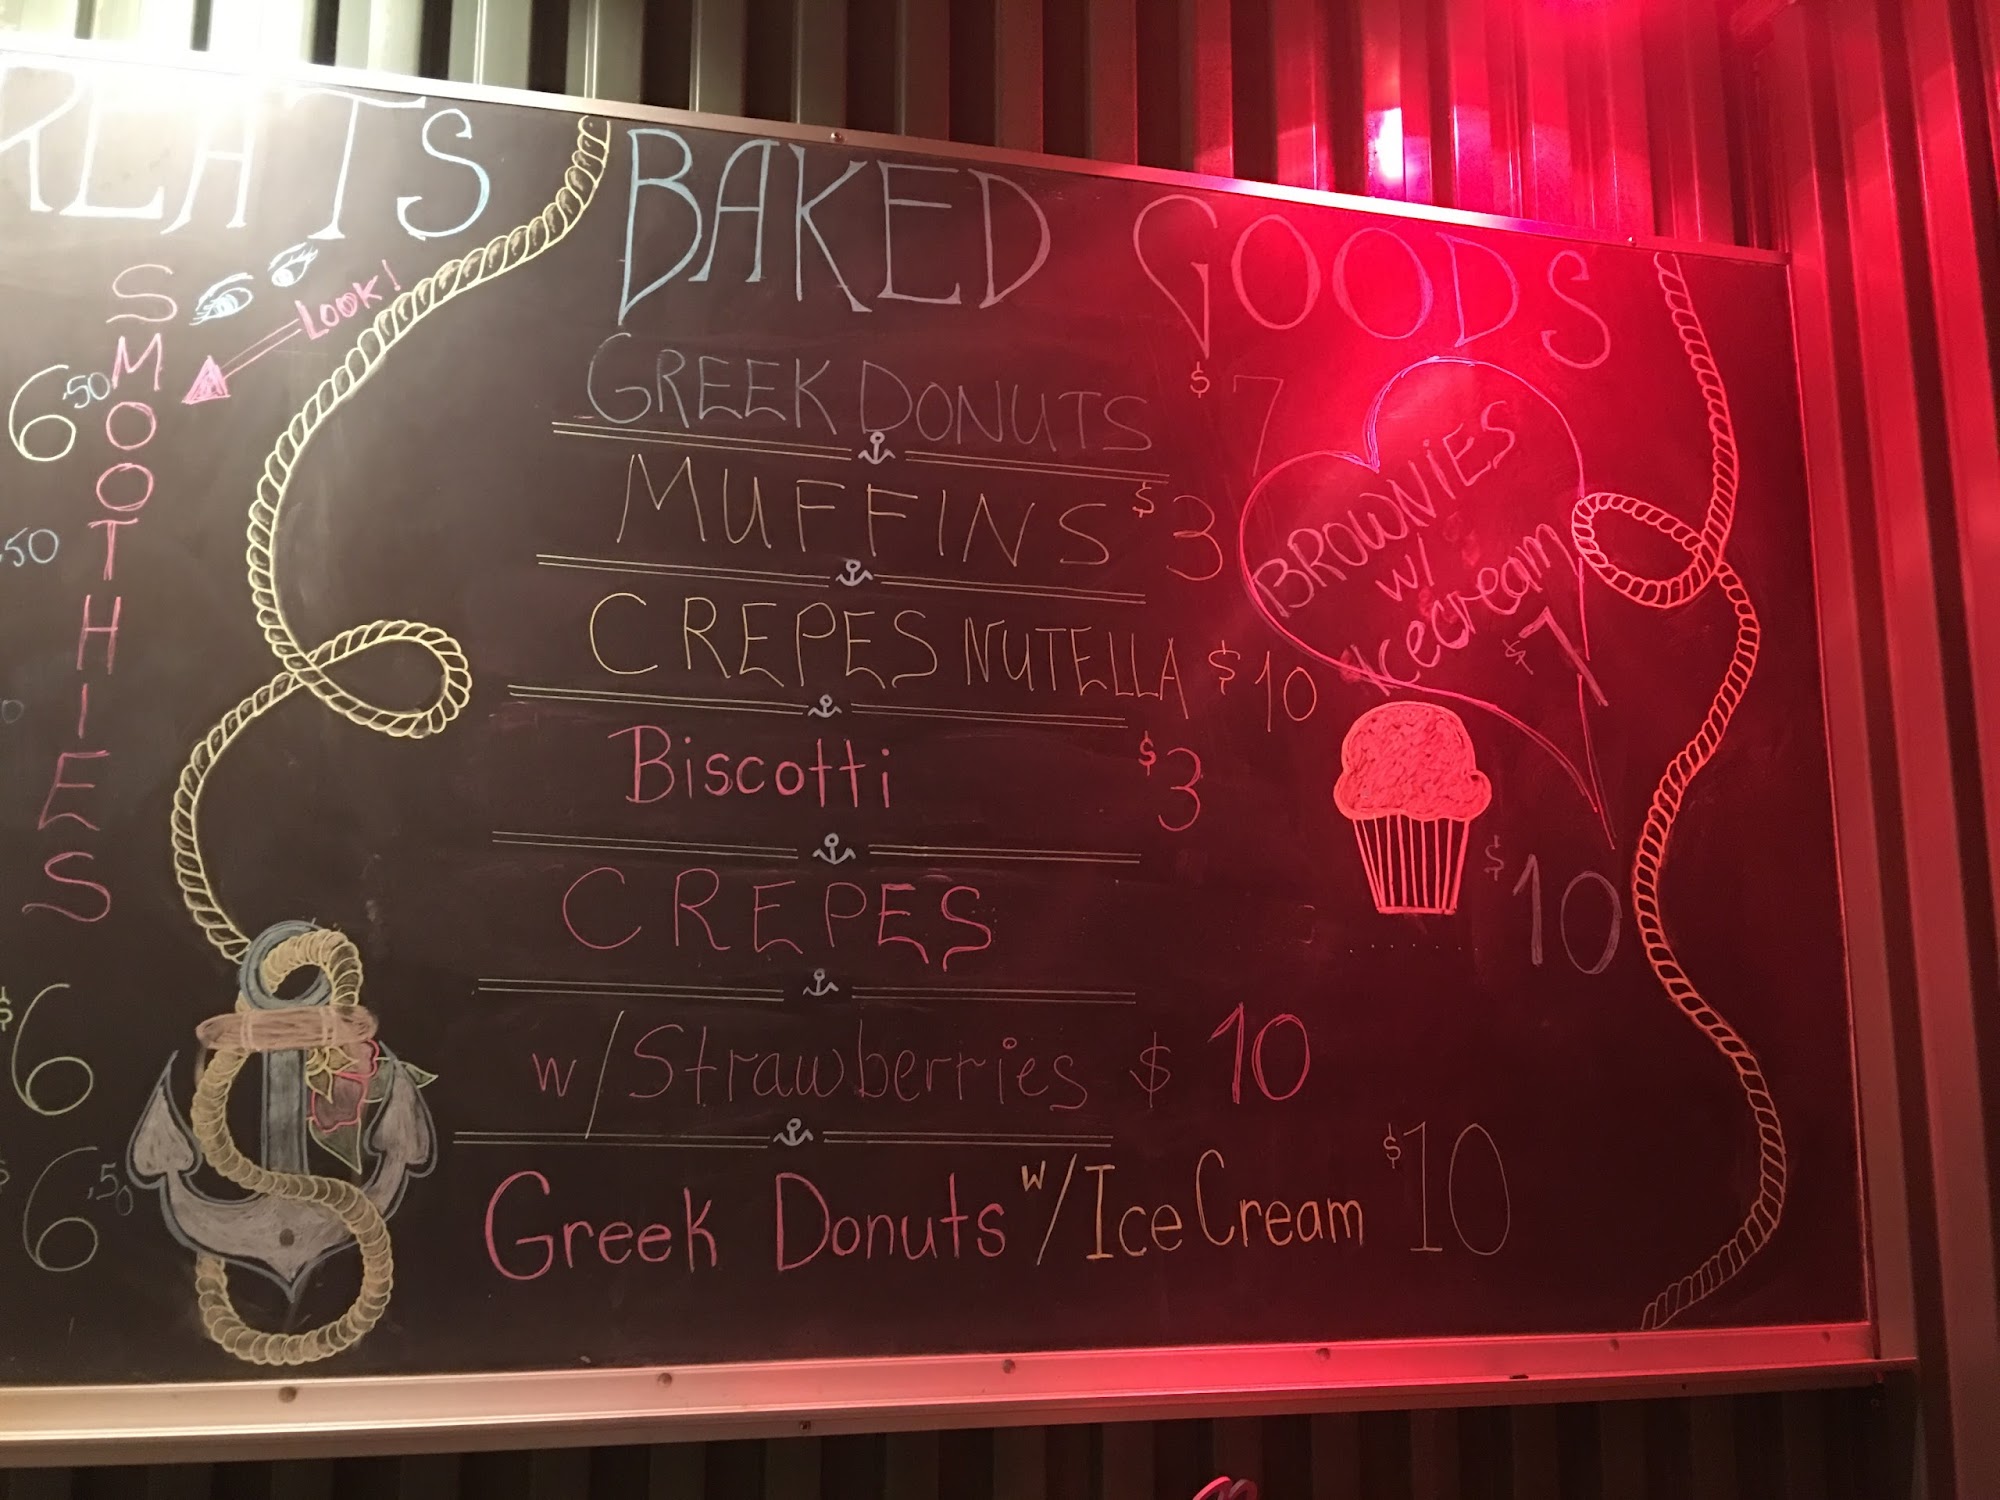 TREATS
LOOK!
SMOOTHIES
6.50
.50
$6
$6.50
BAKED GOODS
GREEK DONUTS $7
MUFFINS $3
CREPES NUTELLA $10
Biscotti $3
CREPES
w/Strawberries $10
Greek Donuts w/Ice Cream $10
BROWNIES
w/
icecream
$7
$10